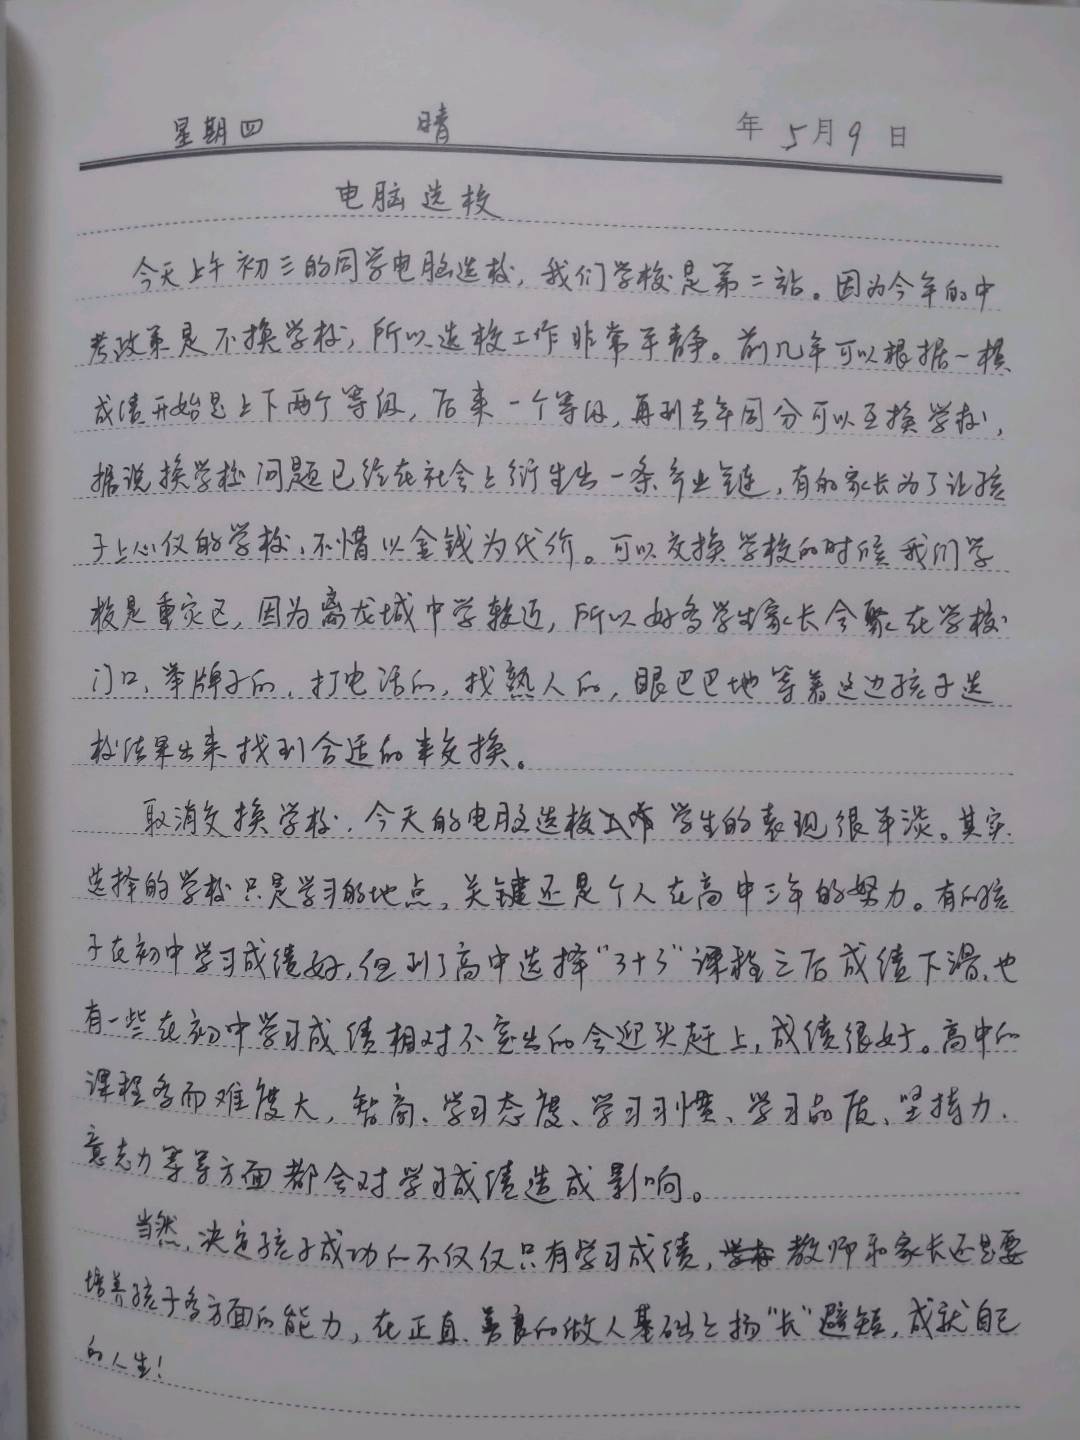 星期四 晴 年 5月9日
电脑选校
今天上午初三的同学电脑选校,我们学校是第二站。因为今年的中
考政策是不换学校,所以选校工作非常平静。前几年可以根据一模
成绩开始是上下两个等级,后来一个等级,再到去年同分可以互换学校,
据说换学校问题已经在社会上衍生出一条产业链,有的家长为了让孩
子上心仪的学校,不惜以金钱为代价。可以交换学校的时候我们学
校是重灾区,因为离龙城中学较近,所以好多学生家长会聚在学校
门口、举牌子的,打电话的,找熟人的,眼巴巴地等着这边孩子选
校结果出来找到合适的来交换。
取消交换学校,今天的电脑选校工作学生的表现很平淡。其实
选择的学校只是学习的地点,关键还是个人在高中三年的努力。有的孩
子在初中学习成绩好,但到了高中选择“3+3”课程之后成绩下滑,也
有一些在初中学习成绩相对不突出的会迎头赶上,成绩很好。高中的
课程多而难度大,智商、学习态度、学习习惯、学习品质、坚持力、
意志力等等方面都会对学习成绩造成影响。
当然,决定孩子成功的不仅仅只有学习成绩,教师和家长还是要
培养孩子多方面的能力,在正直、善良的做人基础上扬“长”避短,成就自己
的人生!